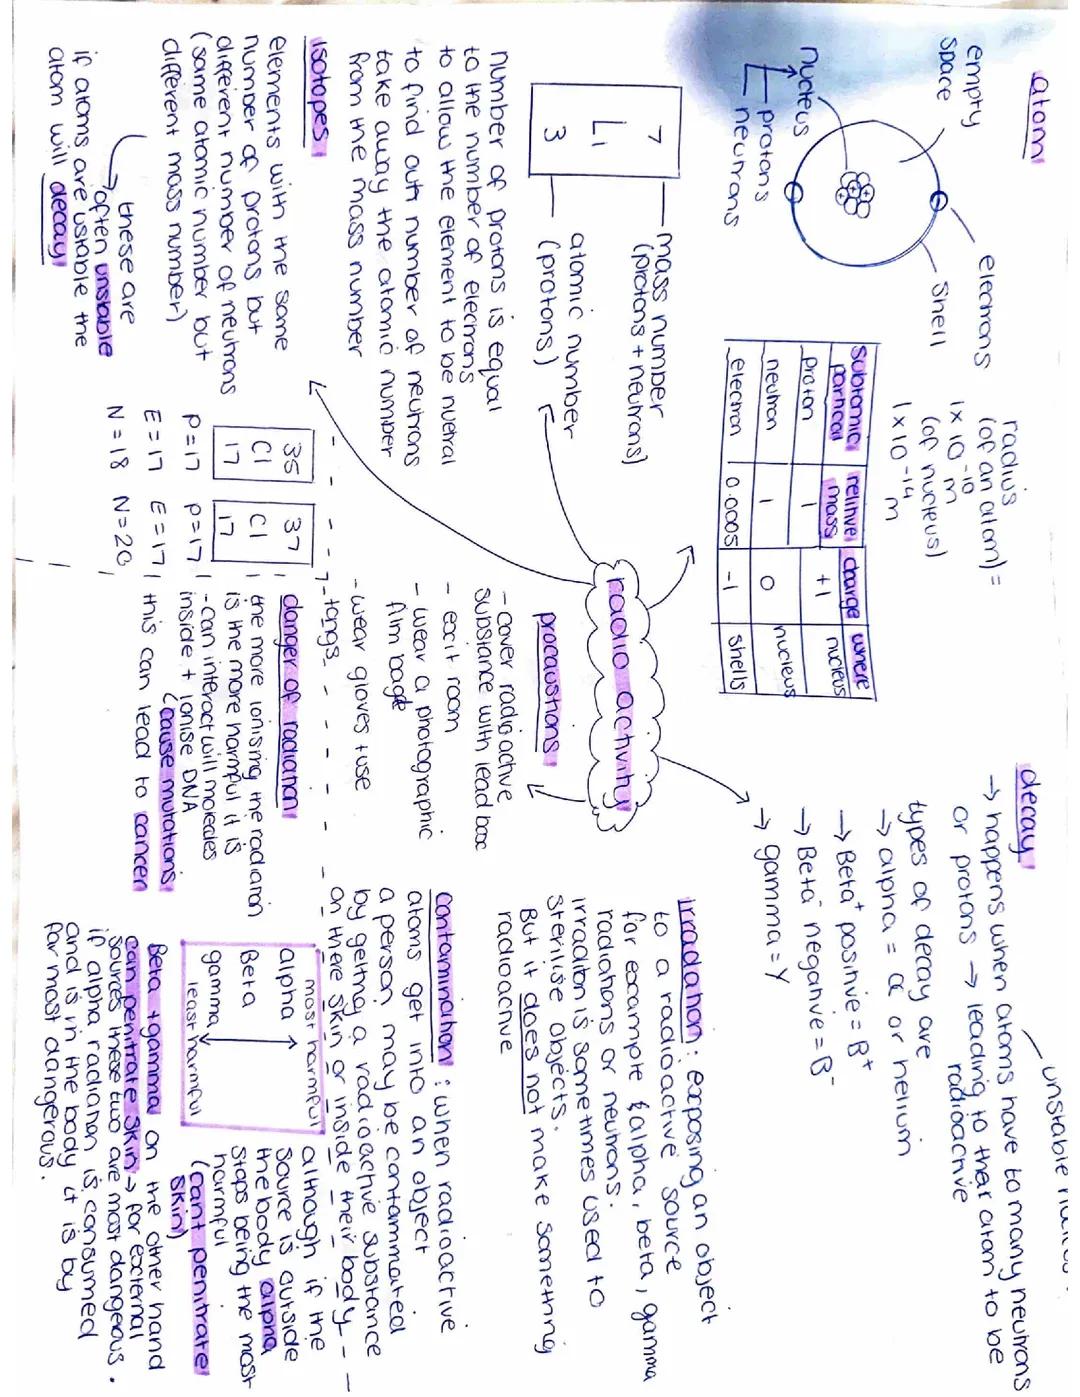 atom
empty
space
electrons
shell
nucleus
protons
neutrons
radius
(of an atom) =
1 x 10 -10 m
(of nucleus)
1 x 10 -14 m
subtomic partical | relitive mass | charge | where
proton | 1 | +1 | nucleus
neutron | 1 | 0 | nucleus
electron | 0.0005 | -1 | shells
7
Li
3
mass number
(protons + neutrons)
atomic number
(protons)
number of protons is equal
to the number of electrons
to allow the element to be nuetral
to find out number of neutrons
take away the atomic number
from the mass number
isotopes
elements with the same
number of protons but
different number of neutrons
(same atomic number but
different mass number)
these are
often unstable
if atoms are ustable the
atom will decay
35
Cl
17
P=17
E=17
N=18
37
Cl
17
P=17
E=17
N=20
radio activity
precaustions
- cover radioactive
substance with lead box
- exit room
- wear a photographic
film bage
- wear gloves + use
tongs
danger of radiation
the more ionising the radiation
is the more harmful it is
- can interact will molecules
inside + ionise DNA
(cause mutations
this can lead to cancer
decay
unstable
→ happens when atoms have to many neutrons
or protons → leading to their atom to be
radioactive
types of decay are
→ alpha = α or helium
→ Beta+ positive = B+
→ Beta- negative = B-
→ gamma = γ
irradation : exposing an object
to a radioactive source
for example (alpha, beta, gamma
radiations or neutrons.
irradition is sometimes used to
sterilise objects.
But it does not make something
radioactive
contamination : when radioactive
atoms get into an object
a person may be contaminated
by getting a radioactive substance
on there skin or inside their body
most harmful
alpha
Beta
gamma
least harmful
although if the
source is outside
the body alpha
stops being the most
harmful
(cant penitrate
skin)
Beta + gamma on the other hand
can penitrate skin → for external
sources these two are most dangerous.
if alpha radiation is consumed
and is in the body it is by
far most dangerous.